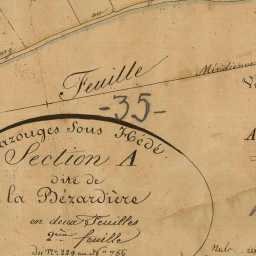 Feuille
Méridienne
-35-
azouges Sous Hédé
Section A
dite de
la Bézardière
en deux Feuilles
2ème feuille
du N°. 229 au N°
A